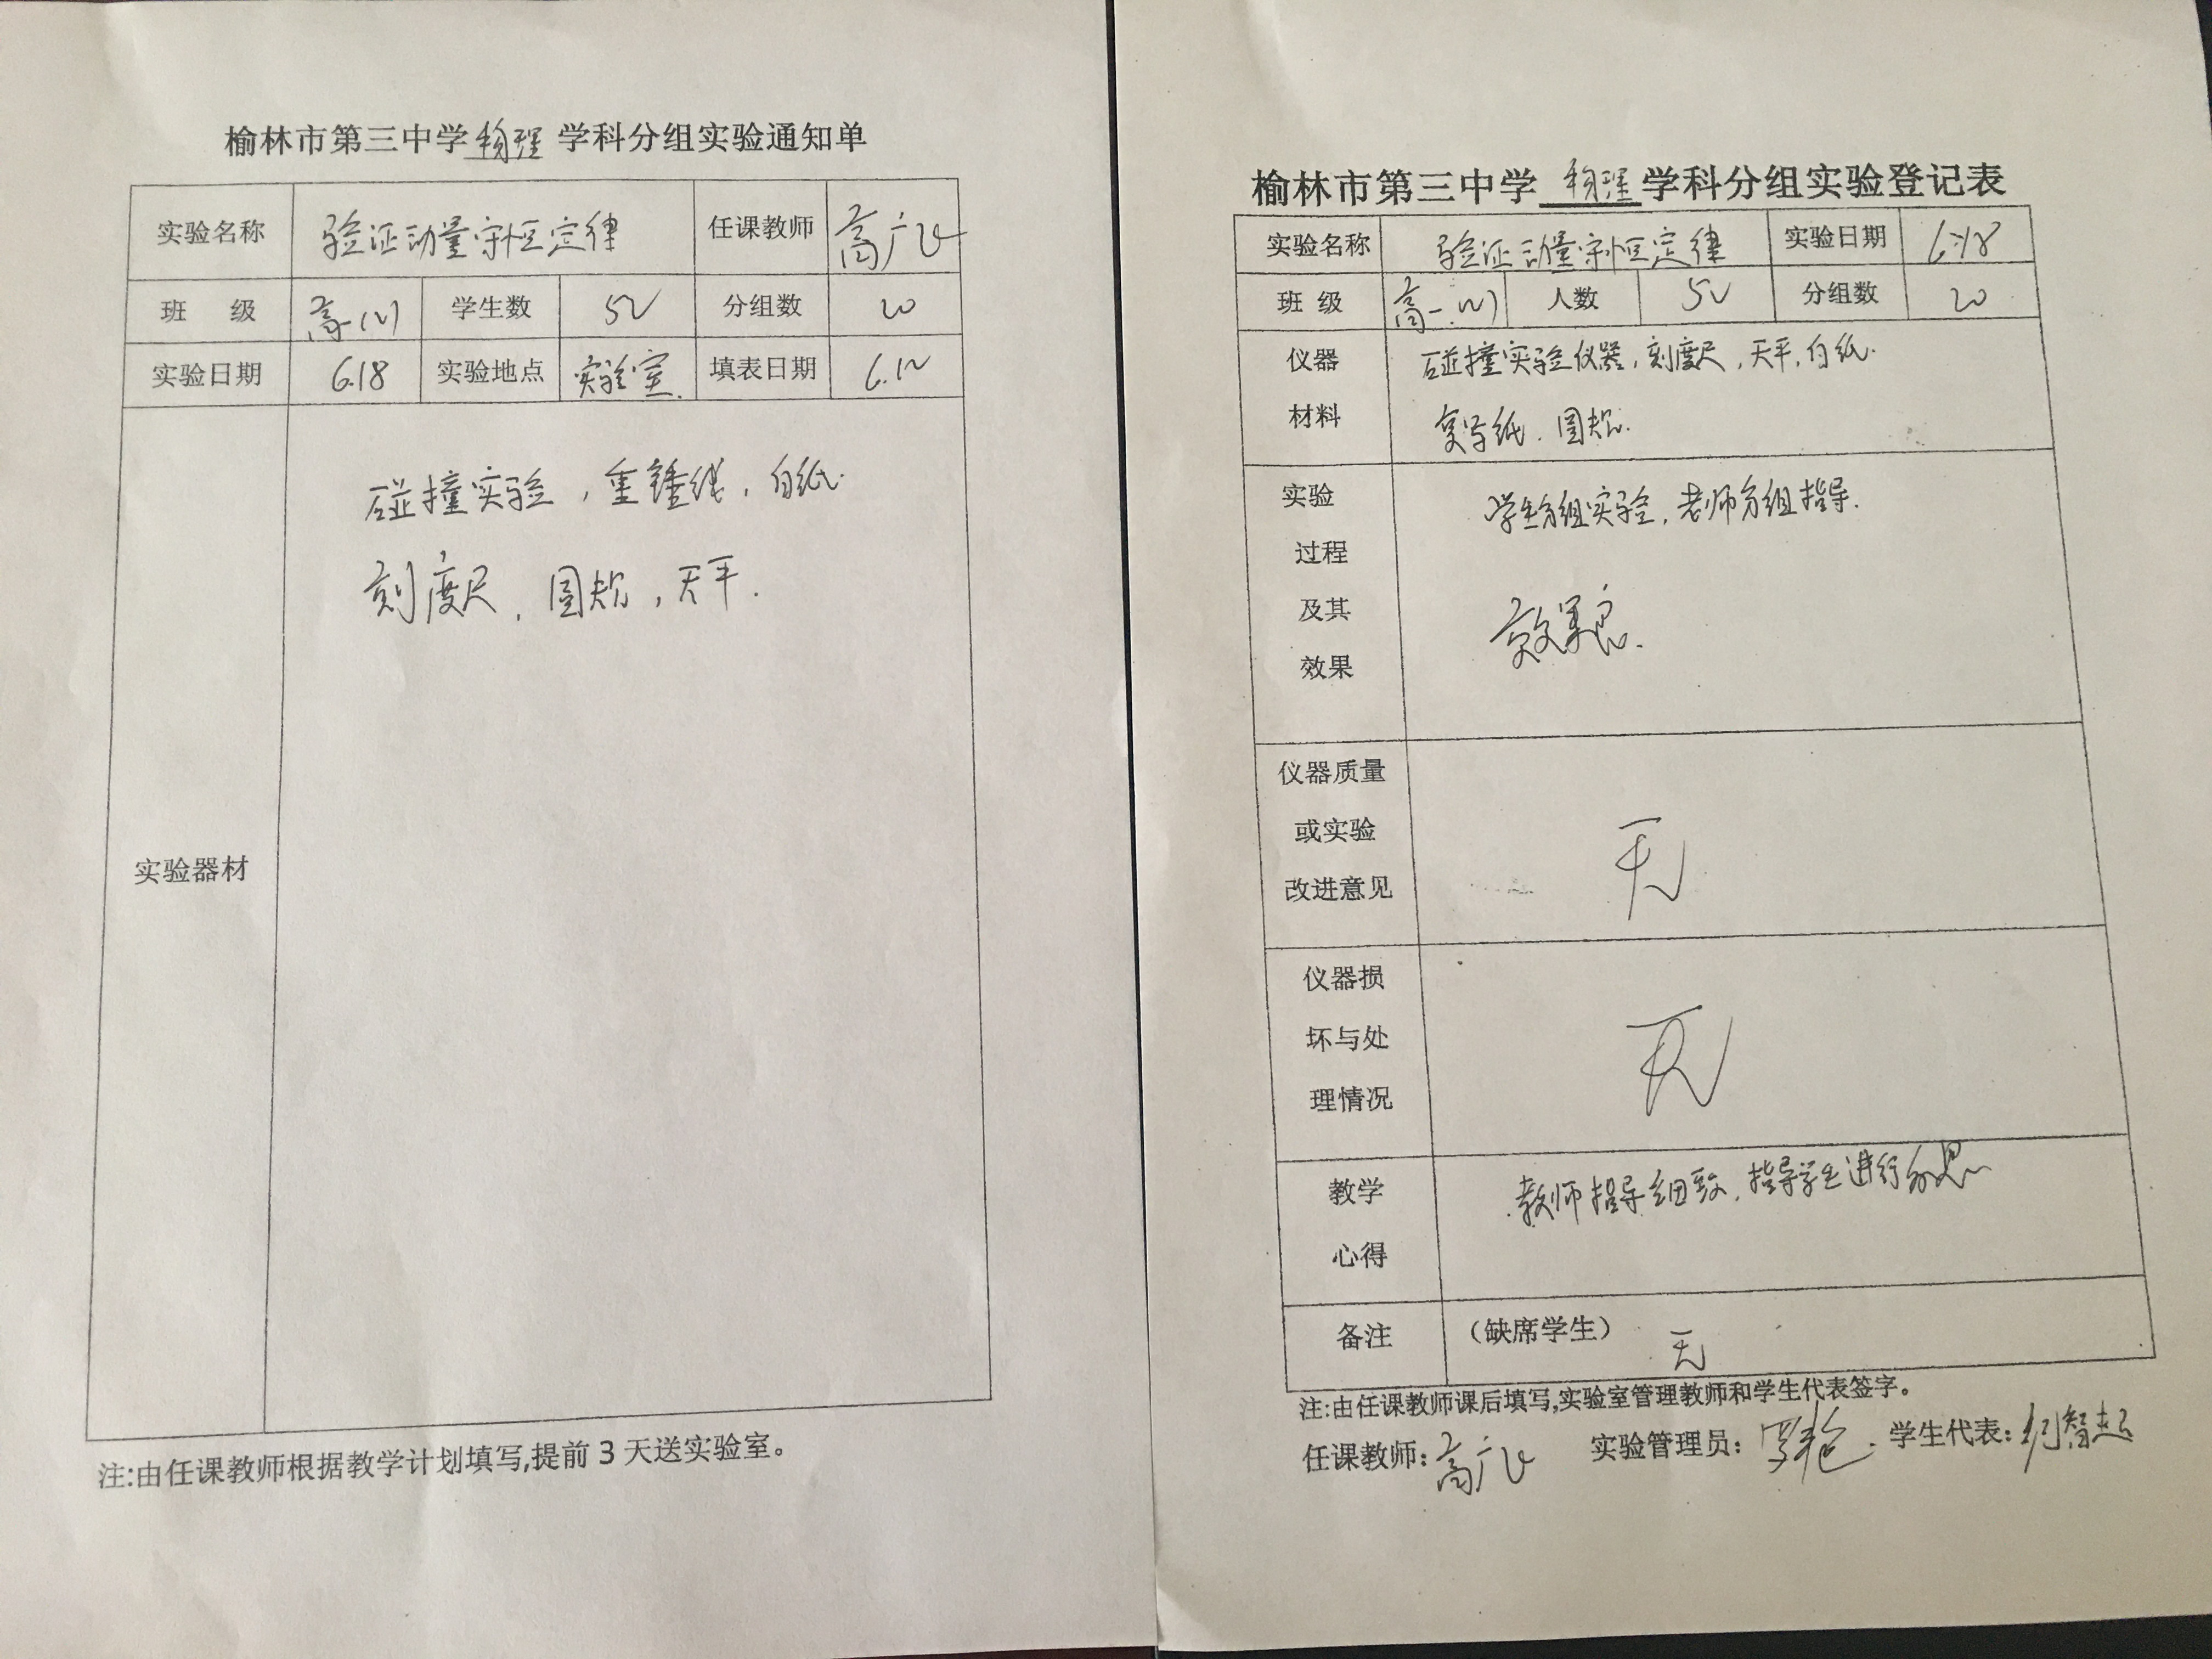 榆林市第三中学 物理 学科分组实验通知单
实验名称 验证动量守恒定律 任课教师 高广飞
班 级 高一(2) 学生数 52 分组数 20
实验日期 6.18 实验地点 实验室. 填表日期 6.12
实验器材
碰撞实验，重锤线，白纸.
刻度尺，圆规，天平.
注:由任课教师根据教学计划填写,提前 3 天送实验室。
榆林市第三中学 物理 学科分组实验登记表
实验名称 验证动量守恒定律 实验日期 6.18
班 级 高一(2) 人数 52 分组数 20
仪器
材料
碰撞实验仪器，刻度尺，天平，白纸.
复写纸. 圆规.
实验
过程
及其
效果
学生分组实验，老师分组指导.
效果良.
仪器质量
或实验
改进意见
无
仪器损
坏与处
理情况
无
教学
心得
教师指导细致，指导学生进行
备注 （缺席学生） 无
注:由任课教师课后填写,实验室管理教师和学生代表签字。
任课教师: 高广飞 实验管理员: 学生代表: